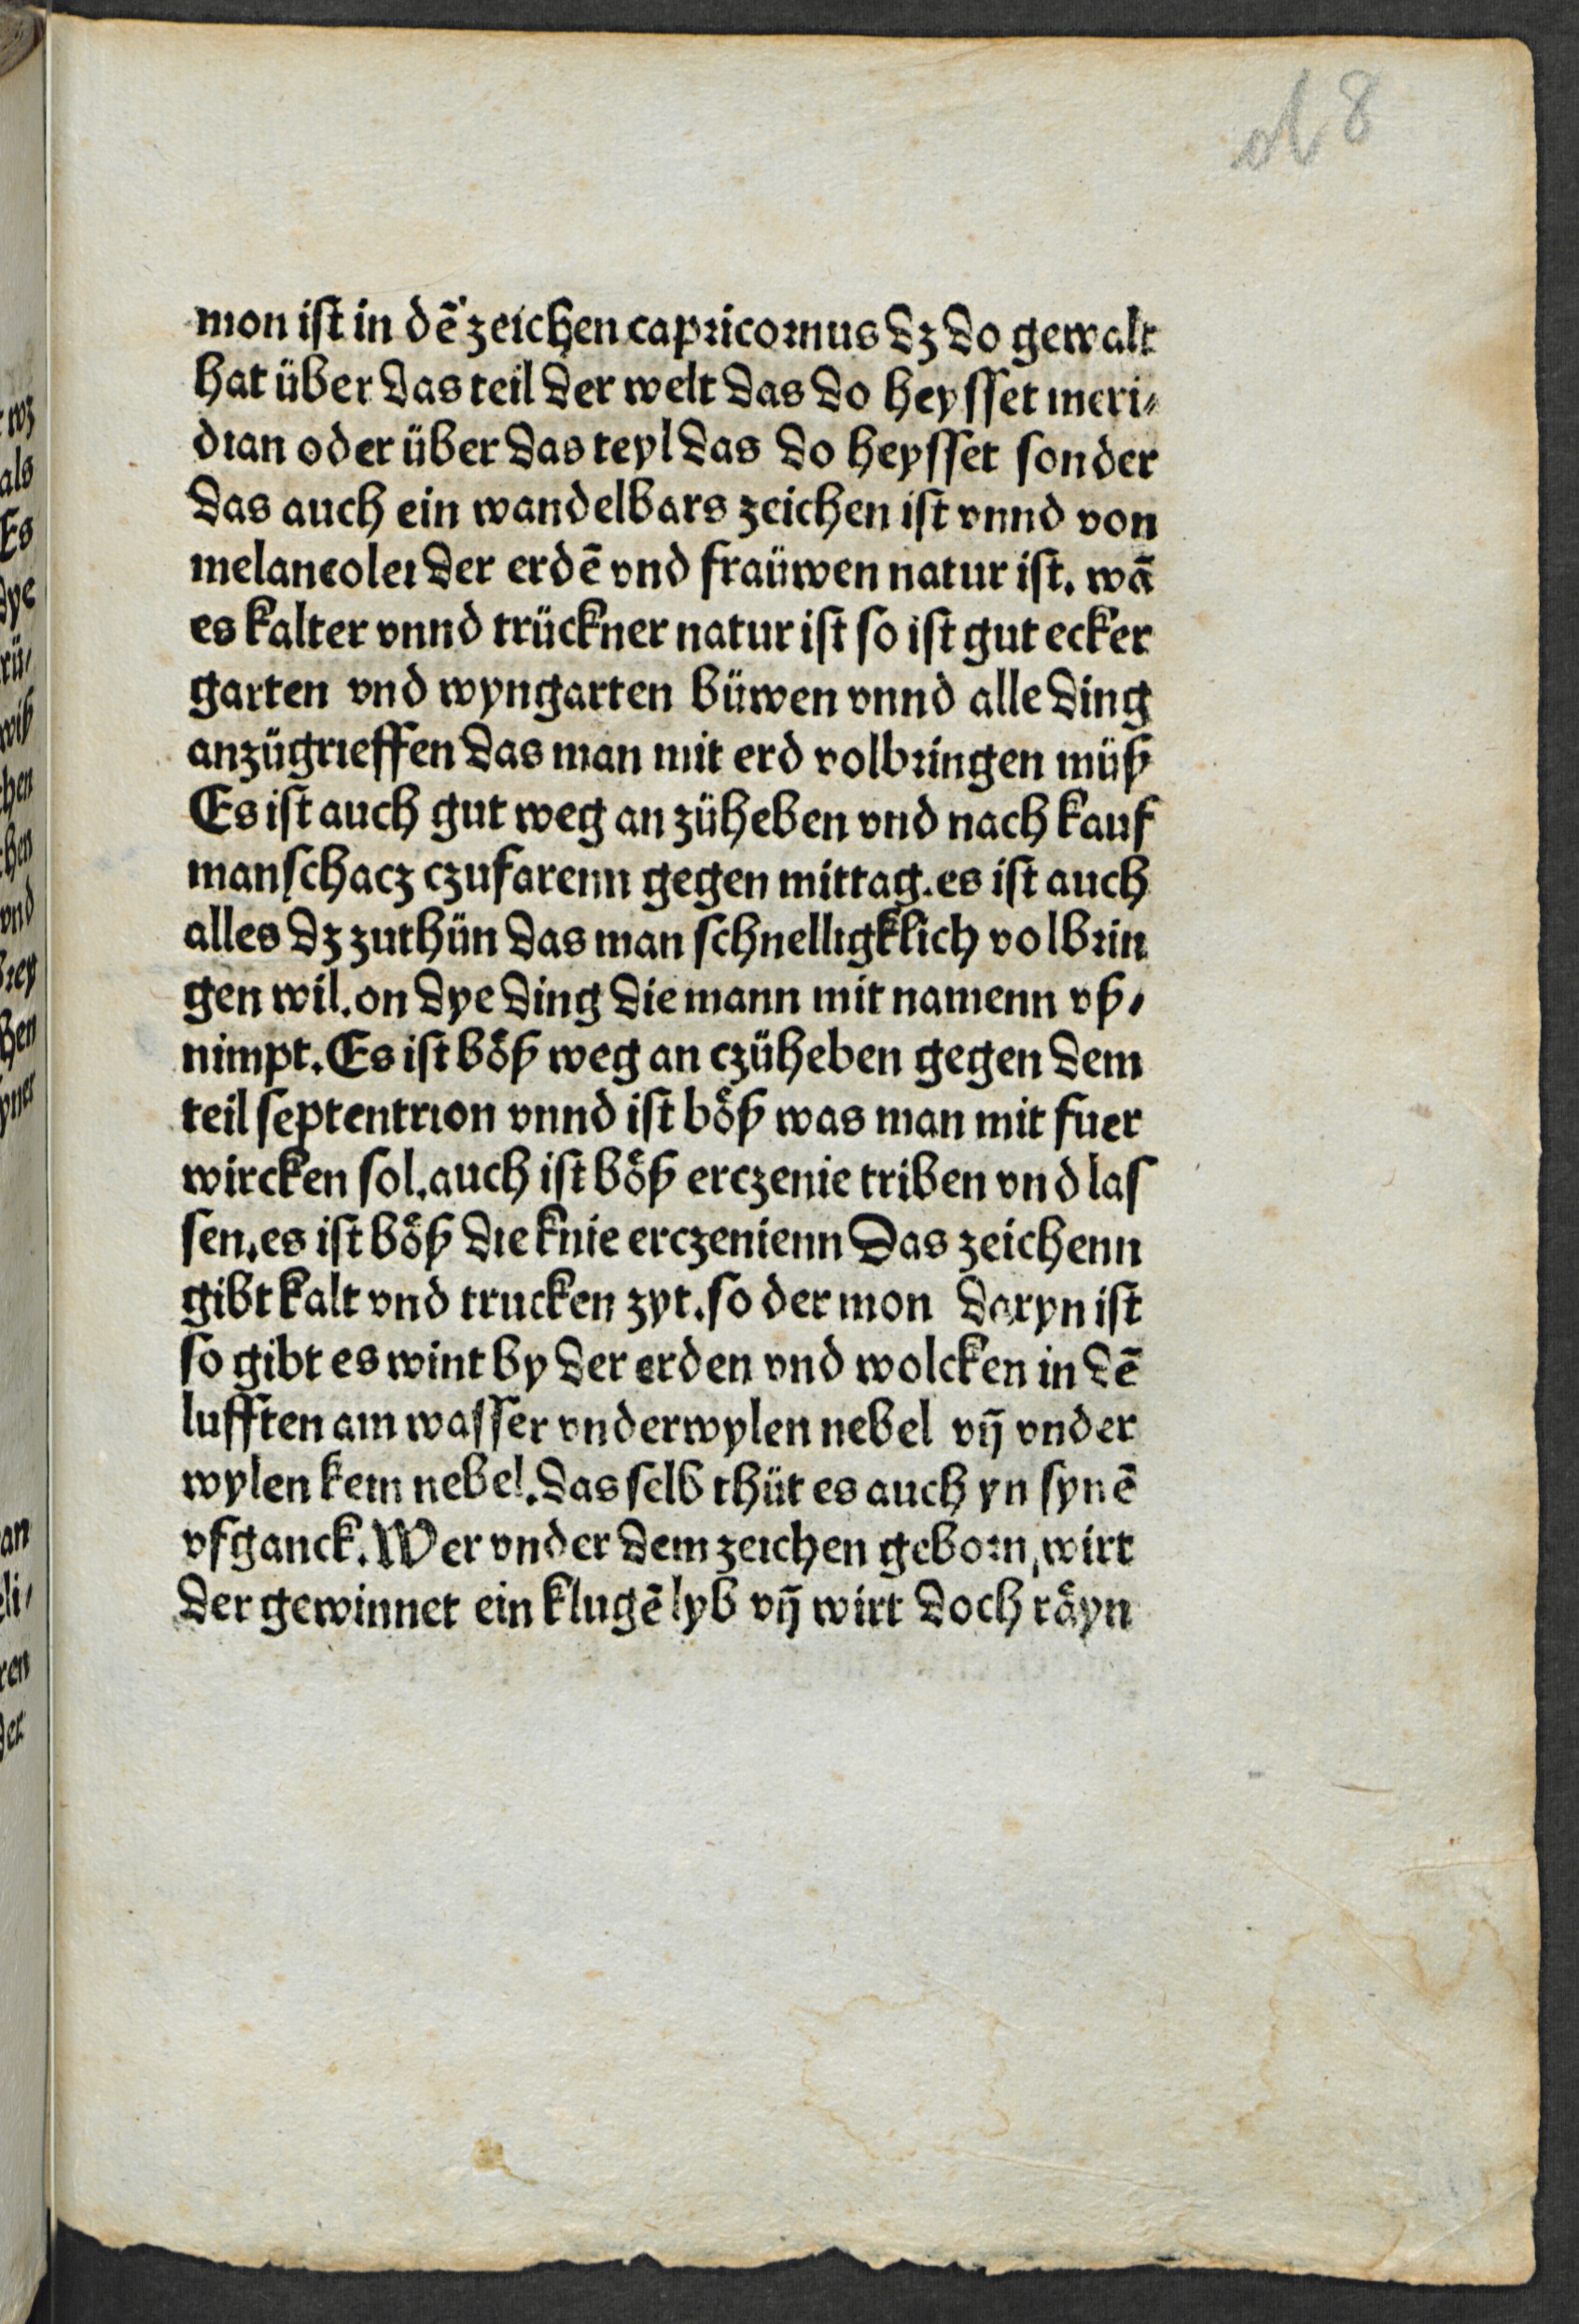 d 8
mon ist in dē zeichen capricornus dz do gewalt
hat über das teil der welt das do heysset meri⸗
dian oder über das teyl das do heysset sonder
das auch ein wandelbars zeichen ist vnnd von
melancolei der erdē vnd fraüwen natur ist. wā
es kalter vnnd trückner natur ist so ist gut ecker
garten vnd wyngarten büwen vnnd alle ding
anzügrieffen das man mit erd volbringen müß
Es ist auch gut weg an züheben vnd nach kauf
manschacz czufarenn gegen mittag. es ist auch
alles dz zuthün das man schnelligklich volbrin
gen wil. on dye ding die mann mit namenn vß⸗
nimpt. Es ist böß weg an czüheben gegen dem
teil septentrion vnnd ist böß was man mit fuer
wircken sol. auch ist böß erczenie triben vnd las
sen. es ist böß die knie erczenienn Das zeichenn
gibt kalt vnd trucken zyt. so der mon daryn ist
so gibt es wint by der erden vnd wolcken in dē
lufften am wasser vnderwylen nebel vn̄ vnder
wylen kein nebel. das selb thüt es auch yn synē
vfganck. Wer vnder dem zeichen geborn wirt
der gewinnet ein klugē lyb vn̄ wirt doch råyn